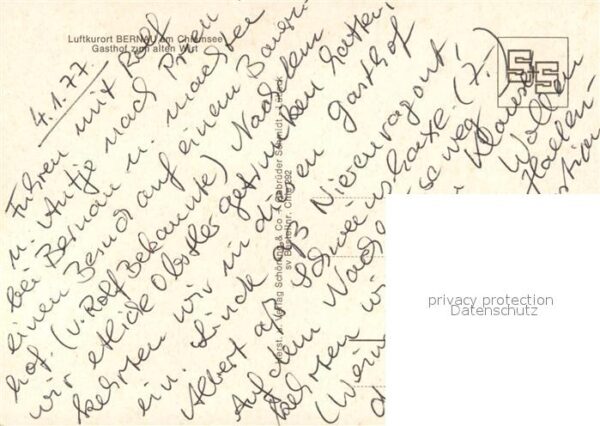 Luftkurort BERNAU am Chiemsee
Gasthof zum alten Wirt
4.1.77.
Fuhren mit Rolf
u. Antje nach Prien
bei Bernau u. machten
einen Besuch auf einem Bauern-
hof. (v. Rolf Bekannte) Nachdem
wir etliche Obstler getrunken hatten,
kehrten wir in diesen Gasthof
ein. Linck aß Nierenragout,
Albert aß Schweinshaxe. (7.-)
Auf dem Nach
seweg
kehrten wi
Klause
(Wein
Wollten
Hallen-
tion
Herst. u. Verlag Schöning & Co + Gebrüder Schmidt - Lübeck
sv Bestellnr. Chie 992
privacy protection
Datenschutz